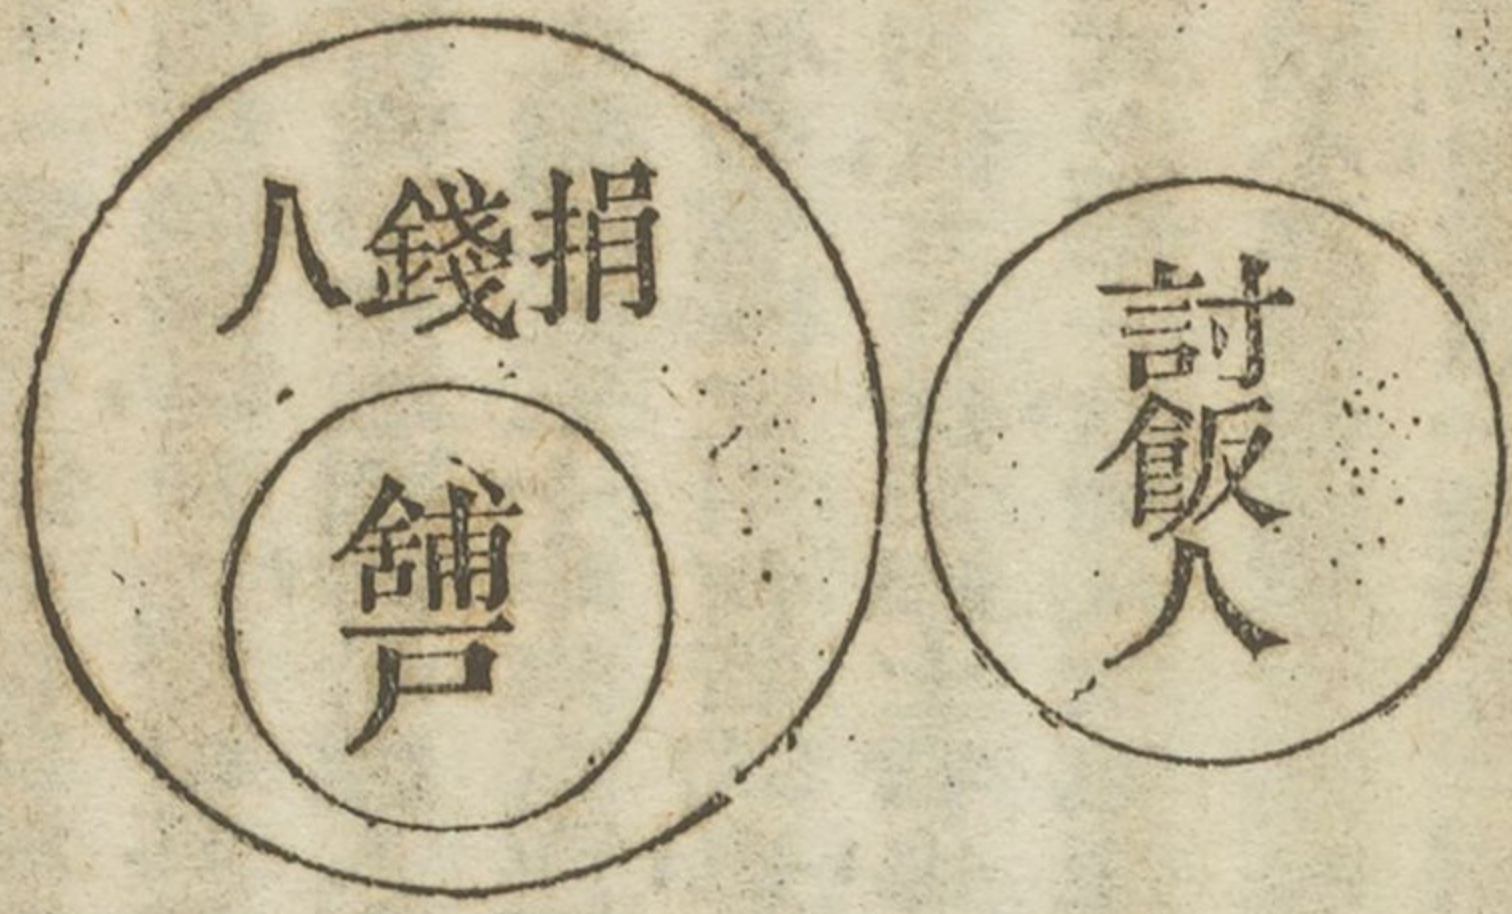 討飯人
捐錢人
舖戶